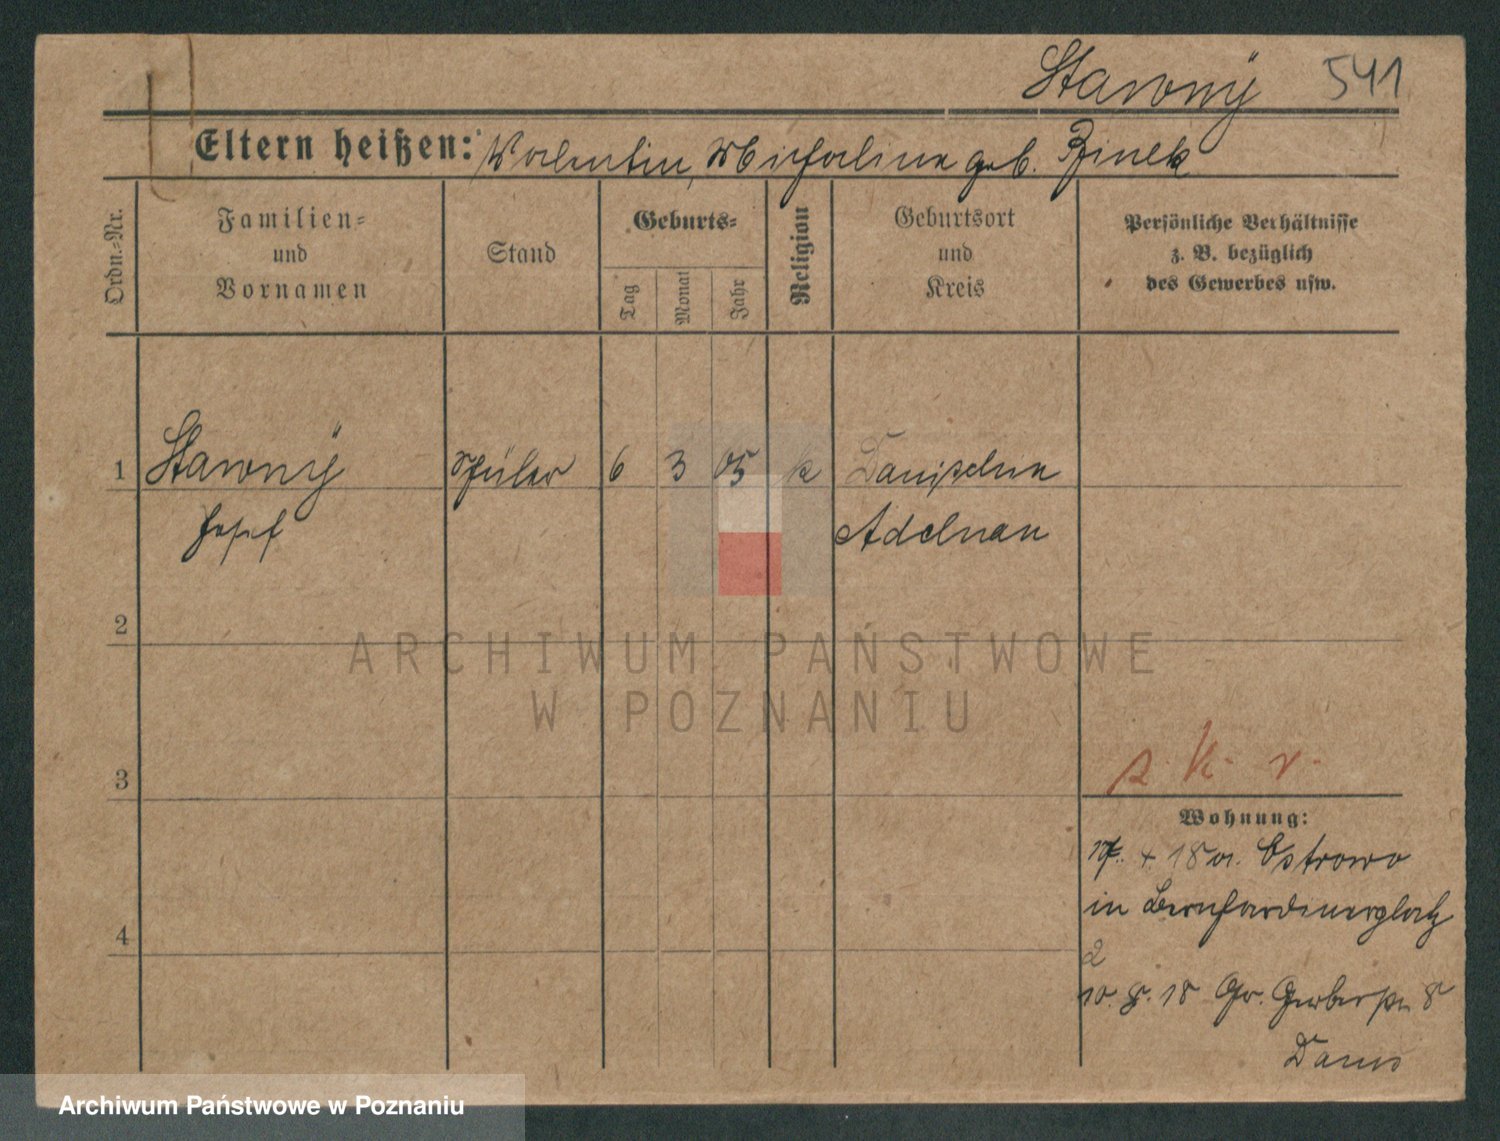 Stawny 541
Eltern heißen: Valentin, Michaline geb. Binek
Ordn.=Nr.
Familien=
und
Vornamen
Stand
Geburts=
Tag
Monat
Jahr
Religion
Geburtsort
und
Kreis
Persönliche Verhältnisse
z. B. bezüglich
des Gewerbes usw.
1 Stawny Schüler 6 3 05 k Danischin
Josef Adelnau
2
ARCHIWUM PAŃSTWOWE
W POZNANIU
3
Wohnung:
4. 18 a. Ostrowo
in Bernhardinerplatz
4
2
10. 8. 18 Gr. Gerberstr. 8
Archiwum Państwowe w Poznaniu